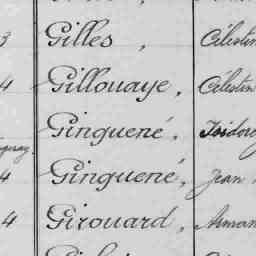 3 Gilles, Célestin
4 Gillouaye, Célestin
Ginguené, Isidore
4 Ginguené, Jean
4 Girouard, Arman